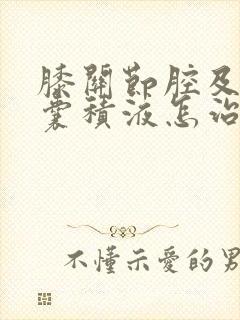 膝關節腔及
囊積液怎治
不懂示愛的男